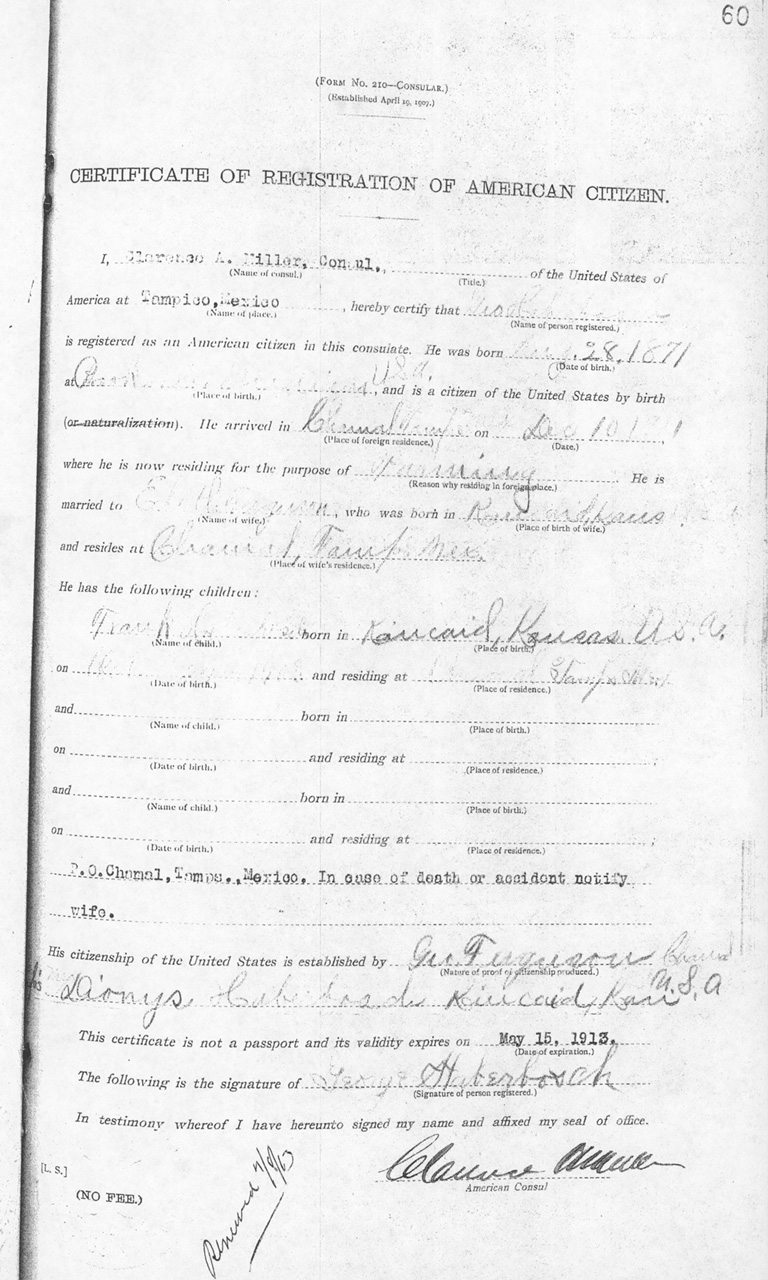 60
(FORM NO. 210—CONSULAR.)
(Established April 19, 1907.)
CERTIFICATE OF REGISTRATION OF AMERICAN CITIZEN.
I, Clarence A. Miller, Consul, of the United States of
(Name of consul.) (Title.)
America at Tampico, Mexico, hereby certify that
(Name of place.) (Name of person registered.)
is registered as an American citizen in this consulate. He was born 28, 1871
(Date of birth.)
at U.S.A., and is a citizen of the United States by birth
(Place of birth.)
(or naturalization). He arrived in Chamal on Dec 10
(Place of foreign residence.) (Date.)
where he is now residing for the purpose of Farming. He is
(Reason why residing in foreign place.)
married to , who was born in Kincaid, Kans
(Name of wife.) (Place of birth of wife.)
and resides at Chamal, Tamps Mex.
(Place of wife's residence.)
He has the following children:
Frank born in Kincaid, Kansas U.S.A.
(Name of child.) (Place of birth.)
on and residing at Tamps Mex
(Date of birth.) (Place of residence.)
and born in
(Name of child.) (Place of birth.)
on and residing at ;
(Date of birth.) (Place of residence.)
and born in
(Name of child.) (Place of birth.)
on and residing at ;
(Date of birth.) (Place of residence.)
P.O. Chamal, Tamps., Mexico. In case of death or accident notify
wife.
His citizenship of the United States is established by Geo. Ferguson Chamal
(Nature of proof of citizenship produced.)
Dionys Haberbosch Kincaid, Kan U.S.A
This certificate is not a passport and its validity expires on May 15, 1913.
(Date of expiration.)
The following is the signature of George Haberbosch
(Signature of person registered.)
In testimony whereof I have hereunto signed my name and affixed my seal of office.
[L. S.]
Clarence A Miller
American Consul
(NO FEE.)
Renewed